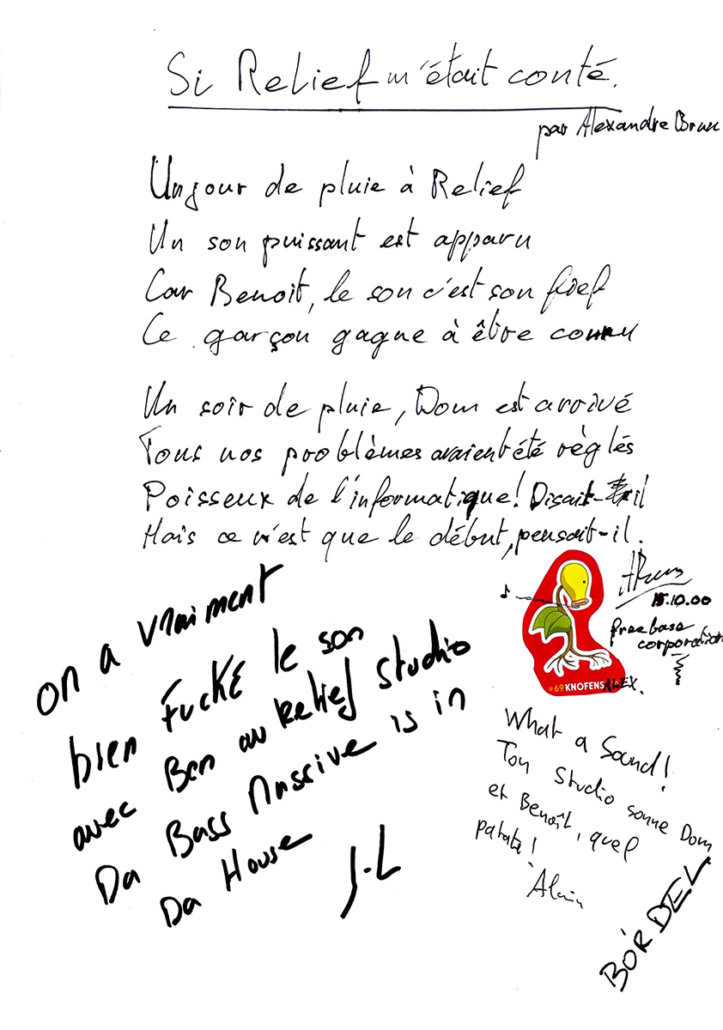 Si Relief m'était conté.
par Alexandre Brun
Un jour de pluie à Relief
Un son puissant est apparu
Car Benoît, le son c'est son fief
Ce garçon gagne à être connu
Un soir de pluie, Dom est arrivé
Tous nos problèmes avaient été règlés
Poisseux de l'informatique! Disait-il
Mais ce n'est que le début, pensait-il.
15.10.00
freebase
corporation
#69KNOFENSALEX.
on a vraiment
bien FUCKÉ le son
avec Ben au Relief Studio
Da Bass Massive is in
Da House
J-L
What a Sound!
Ton Studio sonne Dom
et Benoît, quel
patate!
Alain
BORDEL